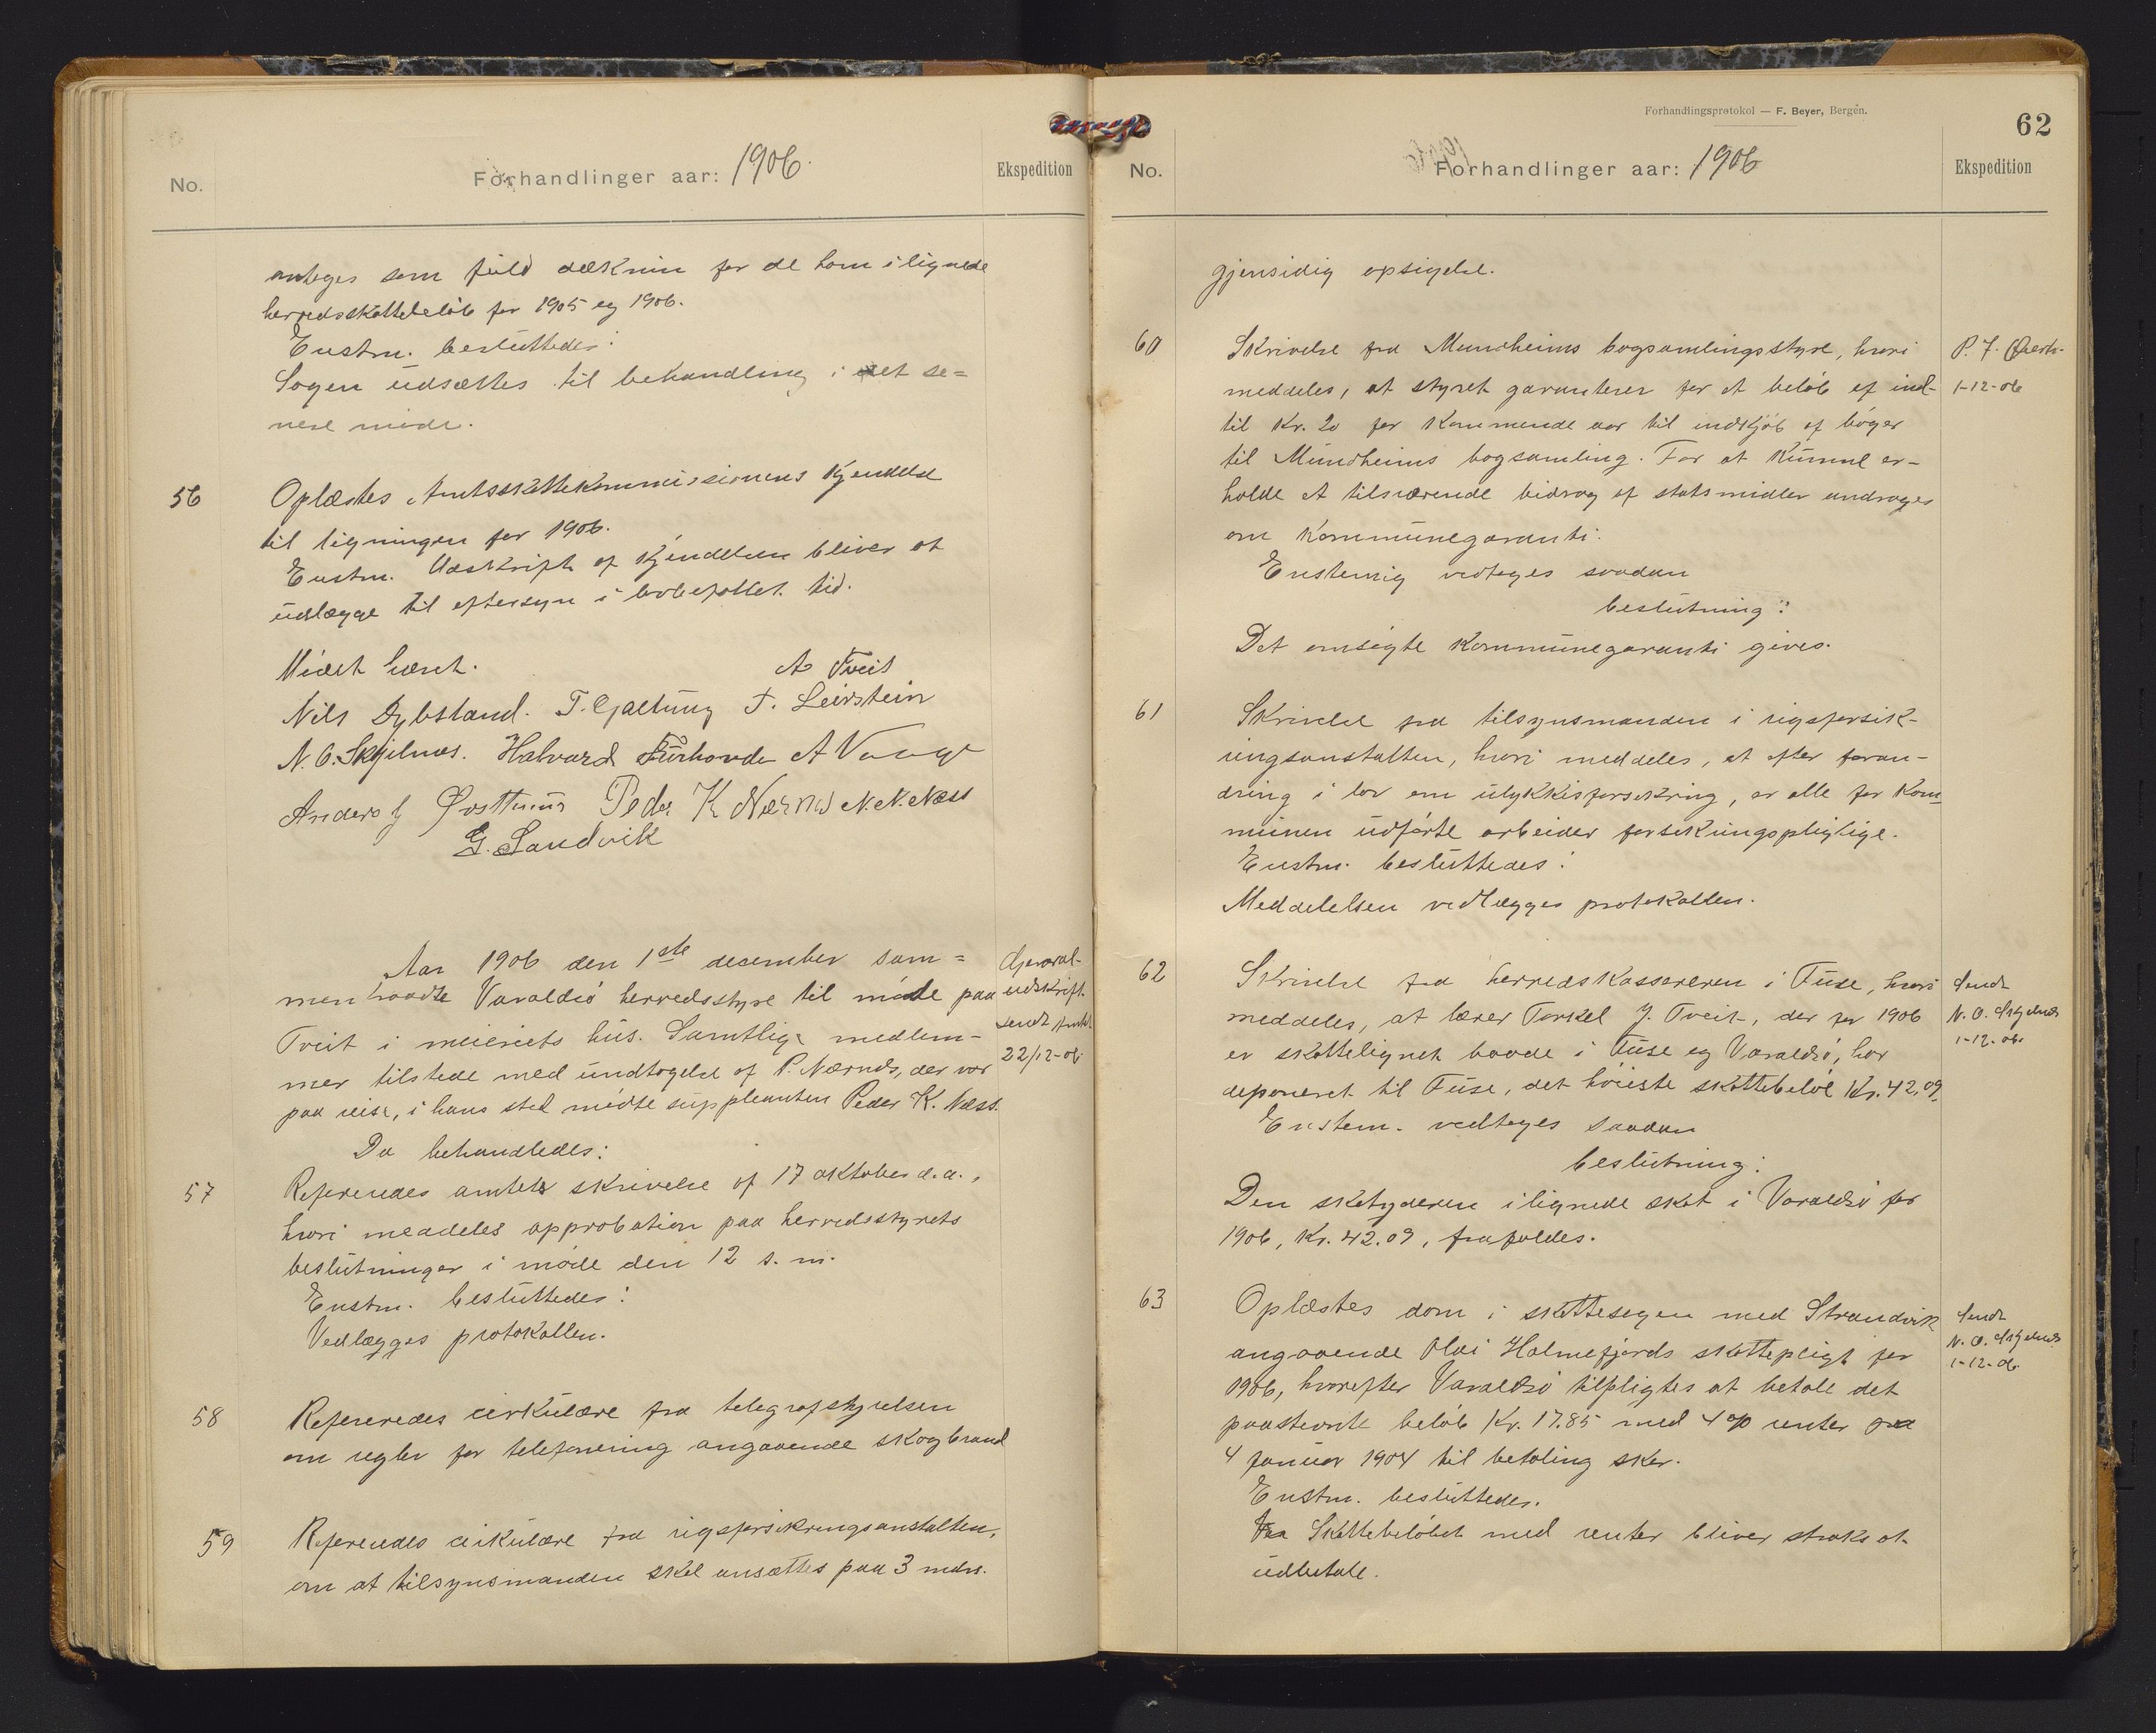 No.
Forhandlinger aar: 1906.
Ekspedition
antages som fuld dæknin for de ham ilignede
herredsskattebeløb for 1905 og 1906.
Enstm. besluttedes:
Sagen udsættes til behandling i et se=
nere møde.
56
Oplæstes Amtsskattekommissionens Kjendelse
til ligningen for 1906.
Enstm. Udskrift af Kjendelsen bliver at
udlægge til eftersyn i lovbefallet tid.
Mødet hævet.
A Tveit
Nils Dybsland. T. Gjaltung T. Leirstein
N. O. Skjelnæs. Halvard Furhovde A Vaage
Anders J Øvsthuus Peder K Nærnæs N. N. Næss
G. Sandvik
Aar 1906 den 1ste december sam=
mentraadte Varaldsø herredsstyre til møde paa
Tveit i meieriets hus. Samtlige medlem-
mer tilstede med undtagelse af P. Nærnæs, der var
paa reise, i hans sted mødte suppleanten Peder K. Næss.
General-
udskrift
sendt Amtet
22/12-06.
Da behandledes:
57
Refereredes amtets skrivelse af 17 oktober d.a.,
hvori meddeles approbation paa herredsstyrets
beslutninger i møde den 12 s. m.
Enstm. besluttedes:
Vedlægges protokollen.
58
Refereredes cirkulære fra telegrafstyrelsen
om regler for telefonering angaaende skogbrand
59
Refereredes cirkulære fra rigsforsikringsanstalten,
om at tilsynsmanden skal ansættes paa 3 mdrs.
Forhandlingsprotokol — F. Beyer, Bergen.
62
No.
Forhandlinger aar: 1906
Ekspedition
gjensidig opsigelse.
60
Skrivelse fra Mundheims bogsamlingsstyre, hvori
meddeles, at styret garanterer for et beløb af ind-
til Kr. 20 for Kommende aar til indkjøb af bøger
til Mundheims bogsamling. For at Kunne er-
holde et tilsvarende bidrag af statsmidler andrages
om Kommunegaranti.
P. J.
1-12-06
Enstemig vedtoges saadan
beslutning:
Det omsøgte Kommunegaranti gives.
61
Skrivelse fra tilsynsmanden i rigsforsik-
ringsanstalten, hvori meddeles, at efter foran-
dring i lov om ulykkisforsikring, er alle for Kom-
munen udførte arbeider forsikringspligtige.
Enstm. besluttedes:
Meddelelsen vedlægges protokollen.
62
Skrivelse fra herredskassereren i Fuse, hvori
meddeles, at lærer Torkel J. Tveit, der for 1906
er skattelignet baade i Fuse og Varaldsø, har
deponeret til Fuse, det høieste skattebeløb Kr. 42,09.
Sendt
N. O. Skjelnæs
1-12-06.
Enstem. vedtoges saadan
beslutning:
Den skatyderen ilignede skat i Varaldsø for
1906, Kr. 42.09, frafaldes.
63
Oplæstes dom i skattesagen med Strandvik
angaaende Olai Holmefjords skattepligt for
1906, hvorefter Varaldsø tilpligtes at betale det
paastevnte beløb Kr. 17.85 med 4 % renter fra
4 Januar 1904 til betaling sker.
Sendt
N. O. Skjelnæs
1-12-06.
Enstm. besluttedes.
Skattebeløbet med renter bliver straks at
udbetale.